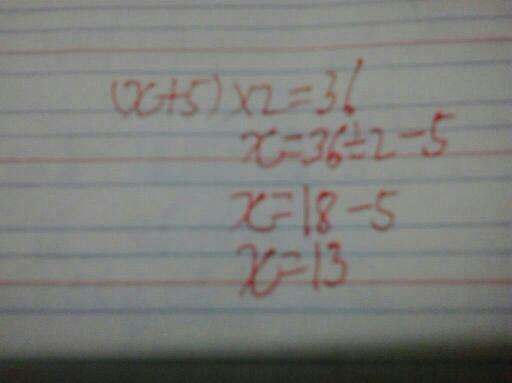 (x+5)×2=36
x=36÷2-5
x=18-5
x=13